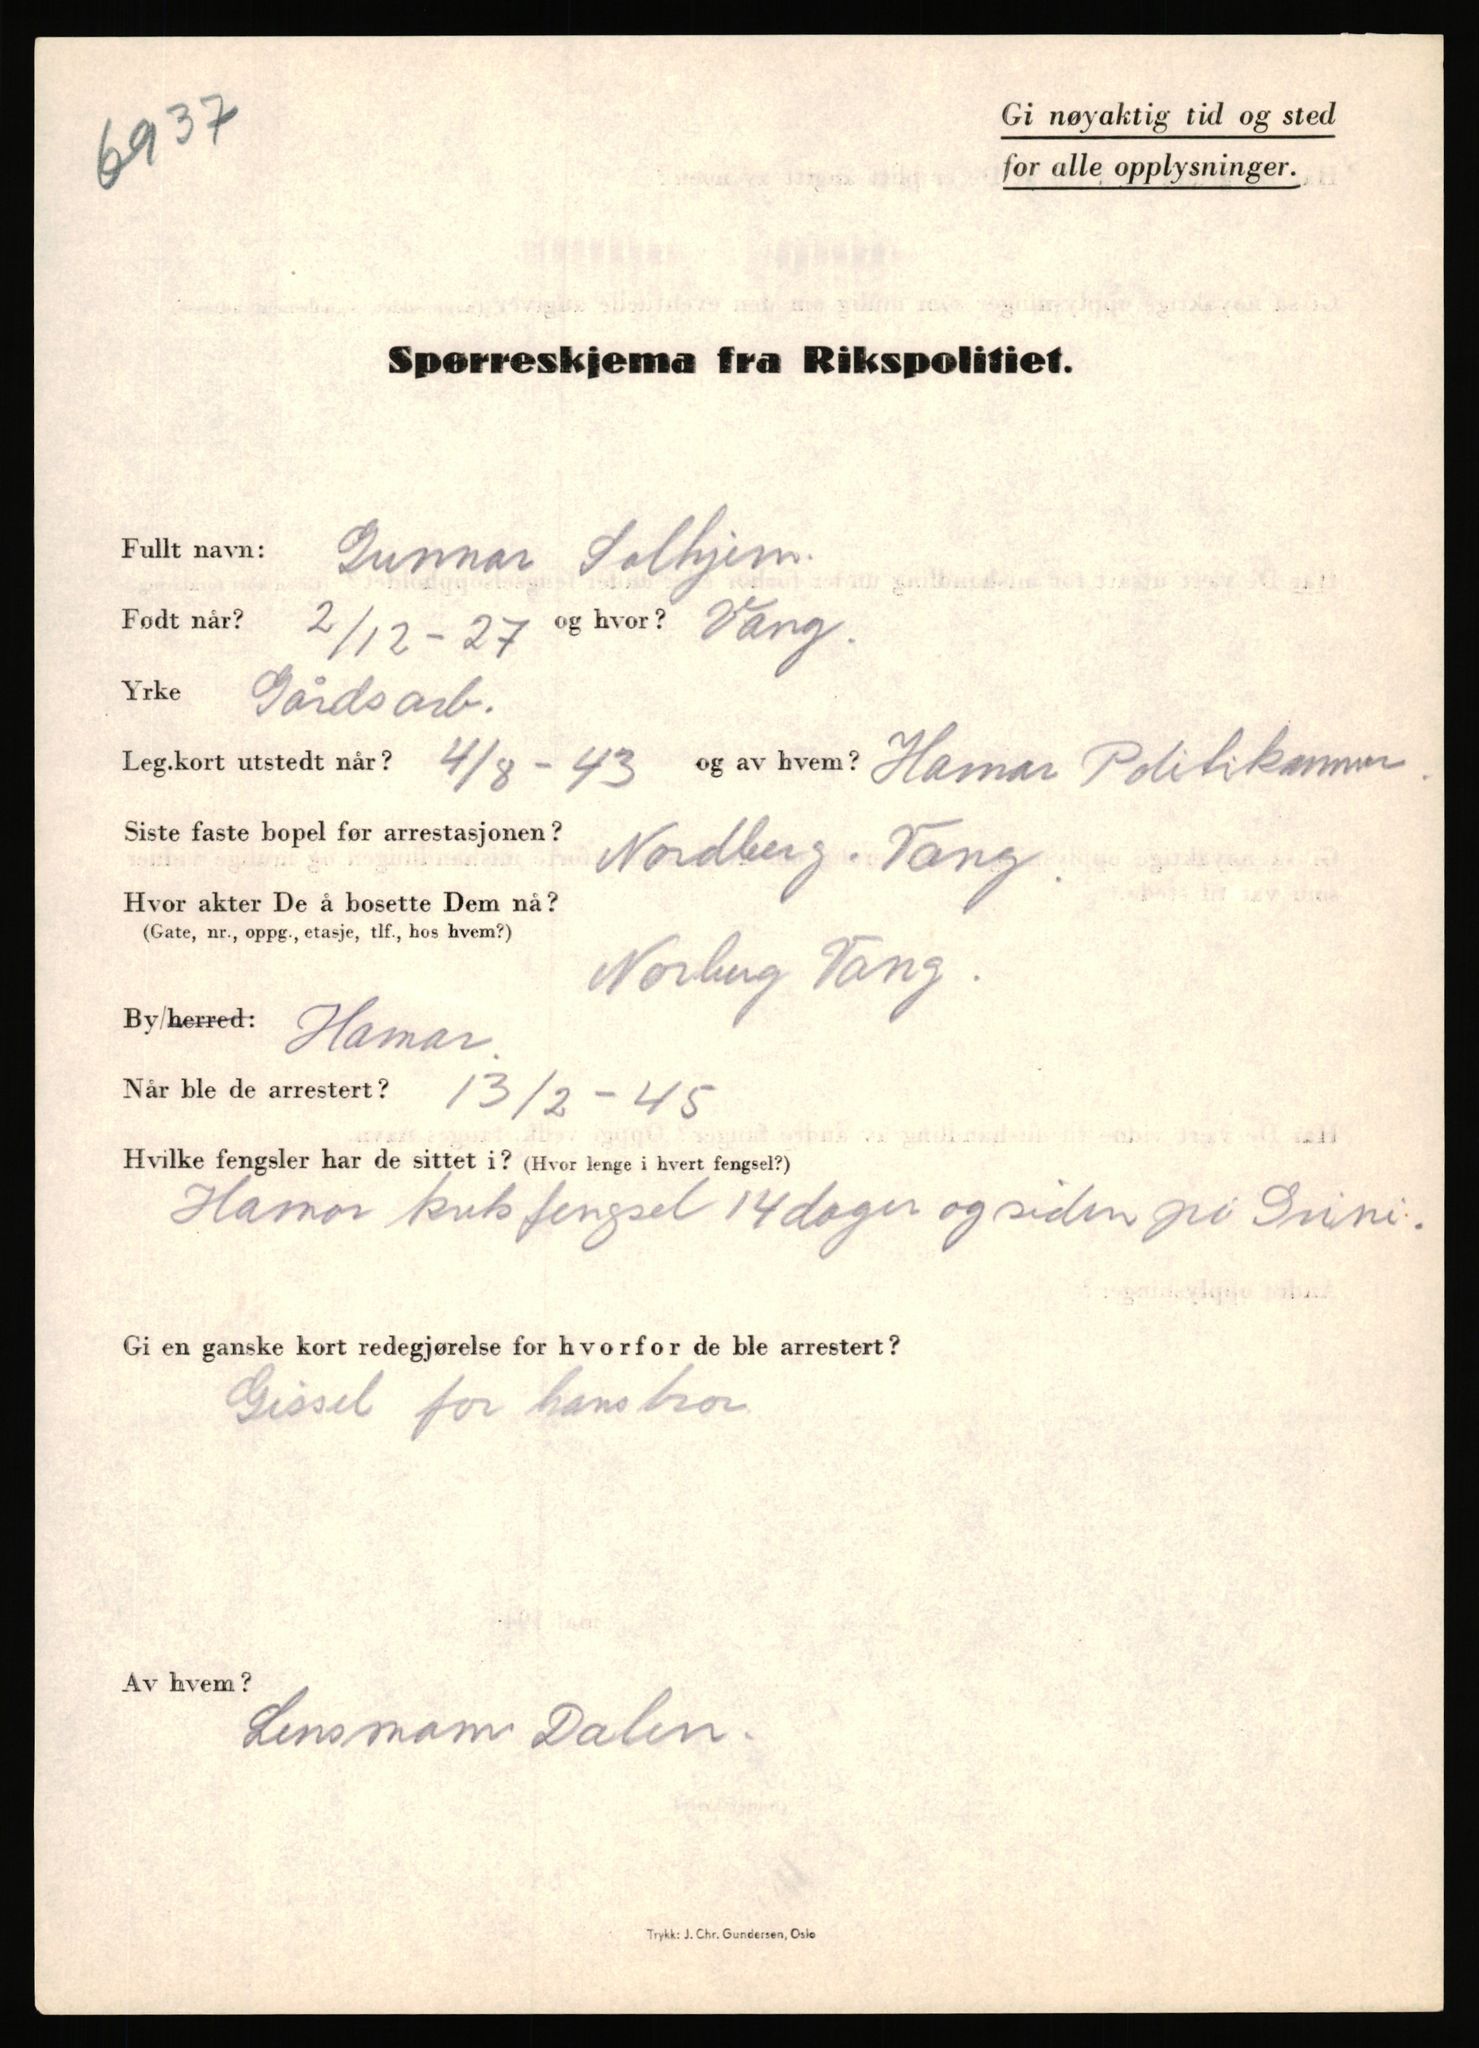 6937
Gi nøyaktig tid og sted
for alle opplysninger.
Spørreskjema fra Rikspolitiet.
Fullt navn: Gunnar Solhjem.
Født når? 2/12-27 og hvor? Vang.
Yrke Gårdsarb.
Leg.kort utstedt når? 4/8-43 og av hvem? Hamar Politikammer.
Siste faste bopel før arrestasjonen? Nordberg. Vang.
Hvor akter De å bosette Dem nå?
(Gate, nr., oppg., etasje, tlf., hos hvem?)
Norberg Vang.
By/herred: Hamar.
Når ble de arrestert? 13/2-45
Hvilke fengsler har de sittet i? (Hvor lenge i hvert fengsel?)
Hamar kretsfengsel 14 dager og siden på Grini.
Gi en ganske kort redegjørelse for hvorfor de ble arrestert?
Gissel for hans bror
Av hvem?
Lensmann Dalen.
Trykk: J. Chr. Gundersen, Oslo